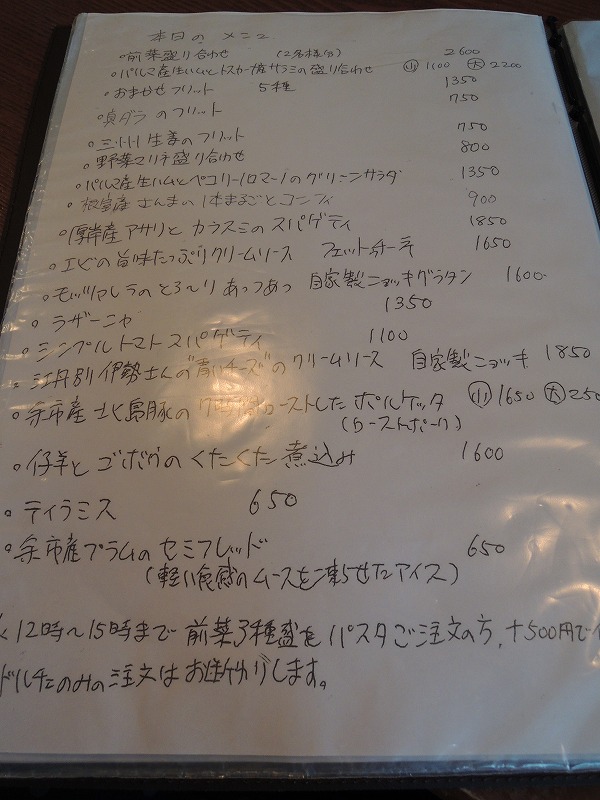 本日の メニュー
○前菜盛り合わせ (2名様分) 2600
○パルマ産生ハムとトスカーナ産サラミの盛り合わせ 小 1100 大 2200
○おまかせフリット 5種 1350
○真ダラ のフリット 750
○三川川生姜のフリット 750
○野菜マリネ盛り合わせ 800
○パルマ産生ハムとペコリーノロマーノのグリーンサラダ 1350
○根室産 さんまの 1本まるごとコンフィ 900
○厚岸産アサリと カラスミの スパゲティ 1850
○エビの旨味たっぷりクリームソース フェットチーネ 1650
○モッツァレラのとろ〜り あっつあっ 自家製ニョッキグラタン 1600-
○ラザーニャ 1350
○シンプルトマト スパゲティ 1100
○江丹別 伊勢士んの"青いチーズ"の クリームソース 自家製ニョッキ 1850
○余市産 北島豚の ローストした ポルケッタ 小 1650 大 250
(ローストポーク)
○仔羊と ゴボウの くたくた 煮込み 1600
○ティラミス 650
○余市産プラムの セミフレッド 650
(軽い食感のムースを凍らせたアイス)
12時〜15時まで 前菜3種盛を パスタご注文の方, +500円で
ドルチェのみの注文は お断りします。